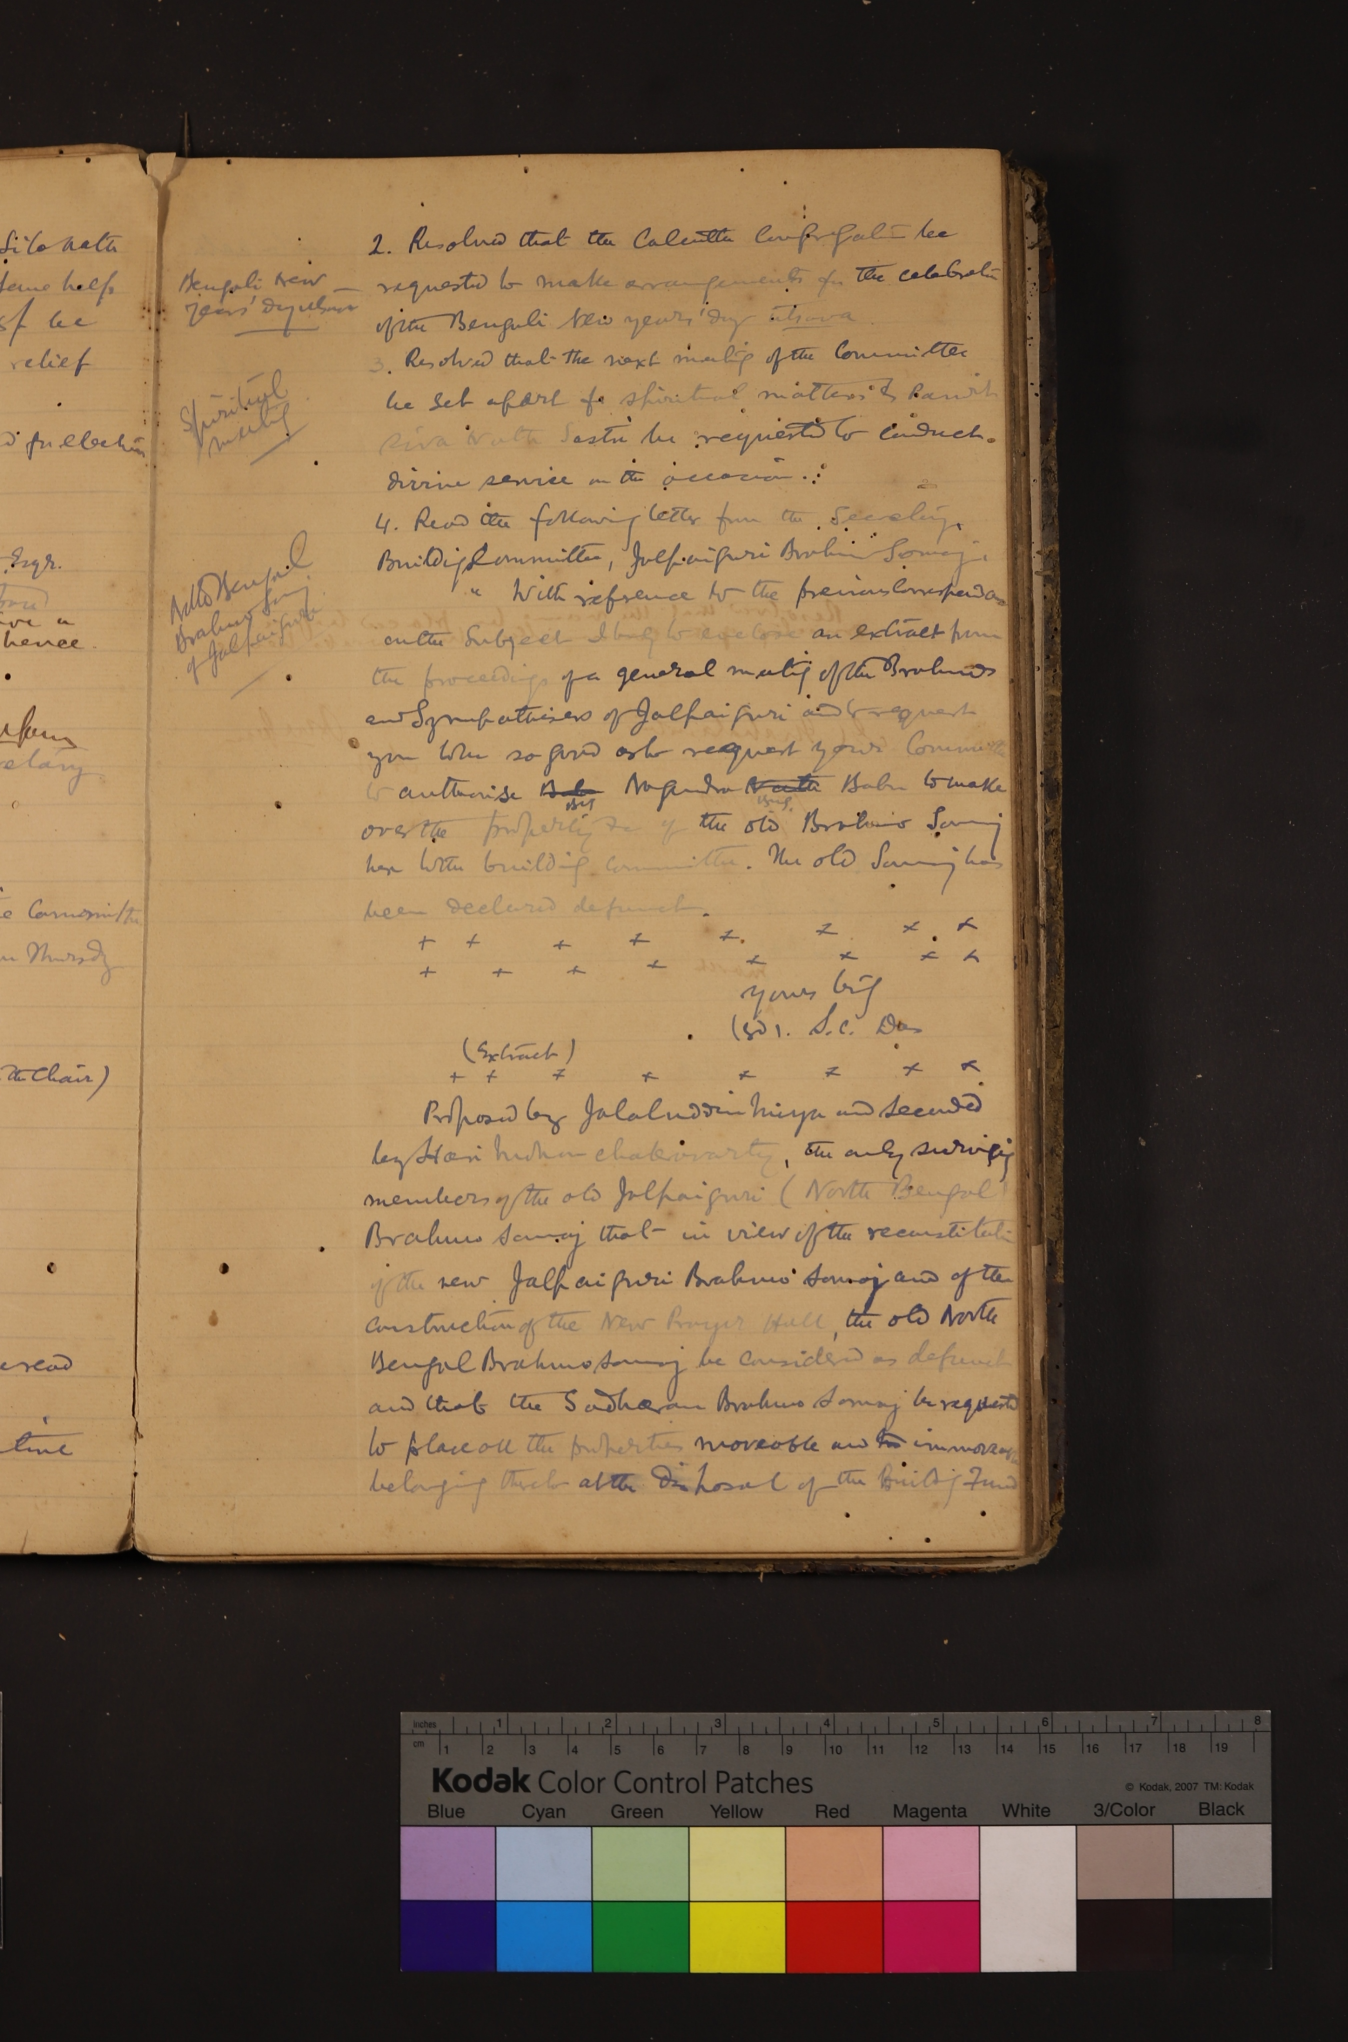 Sita Nath
some help
of be
relief
for election
Esqr.
hence.
Committee
on Thursdy
the Chair)
read
time
Bengali New
years' day utsava
Spiritual
meeting
North Bengal
Brahmo Samaj
of Jalpaiguri
2. Resolved that the Calcutta Congregatn be
requested to make arrangements for the celebratn
of the Bengali New years' day utsava.
3. Resolved that the next meetig of the Committee
be set apart for spiritual matters & Pandit
Siva Nath Sastri be requested to conduct
divine service on the occasion.
4. Read the following letter from the Secretary,
Buildig Committee, Jalpaiguri Brahmo Samaj.
" With reference to the previous correspondence
on the subject I beg to enclose an extract from
the proceedings of a general meetig of the Brahmos
and Sympathisers of Jalpaiguri and to request
you to be so good as to request your Committee
to authorise Babu Nagendra Nath Babu to make
over the property &c of the old Brahmo Samaj
here to the buildig Committee. The old Samaj has
been declared defunct.
+ + + + + + + +
+ + + + + + + +
yours trly
(Sd). S.C. Das
(Extract)
+ + + + + + + +
Proposed by Jalaluddin Miya and seconded
by Hari Mohan Chakravarty, the only survivig
members of the old Jalpaiguri (North Bengal)
Brahmo Samaj that in view of the reconstitutn
of the new Jalpaiguri Brahmo Samaj and of the
construction of the New Prayer Hall, the old North
Bengal Brahmo Samaj be considered as defunct
and that the Sadharan Brahmo Samaj be requested
to place all the properties moveable and immoveable
belonging thereto at the disposal of the Buildig Fund
Inches 1 2 3 4 5 6 7 8
cm 1 2 3 4 5 6 7 8 9 10 11 12 13 14 15 16 17 18 19
Kodak Color Control Patches © Kodak, 2007 TM: Kodak
Blue Cyan Green Yellow Red Magenta White 3/Color Black